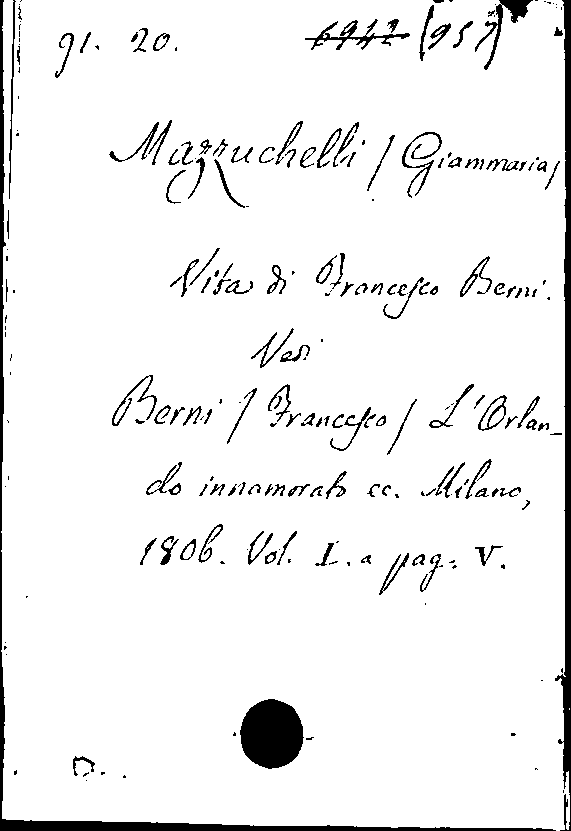 91. 20. 6942 (957)
Mazzuchelli / Giammaria /
Vita di Francesco Berni.
Vedi
Berni / Francesco / L'Orlan_
do innamorato ec. Milano,
1806. Vol. I. a pag. V.
D.